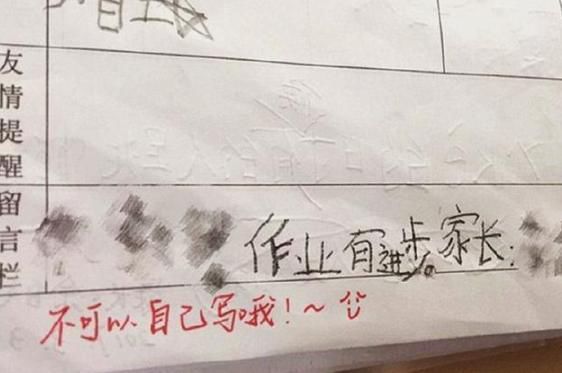 友情提醒
留言栏
作业有进步。家长:
不可以自己写哦！~